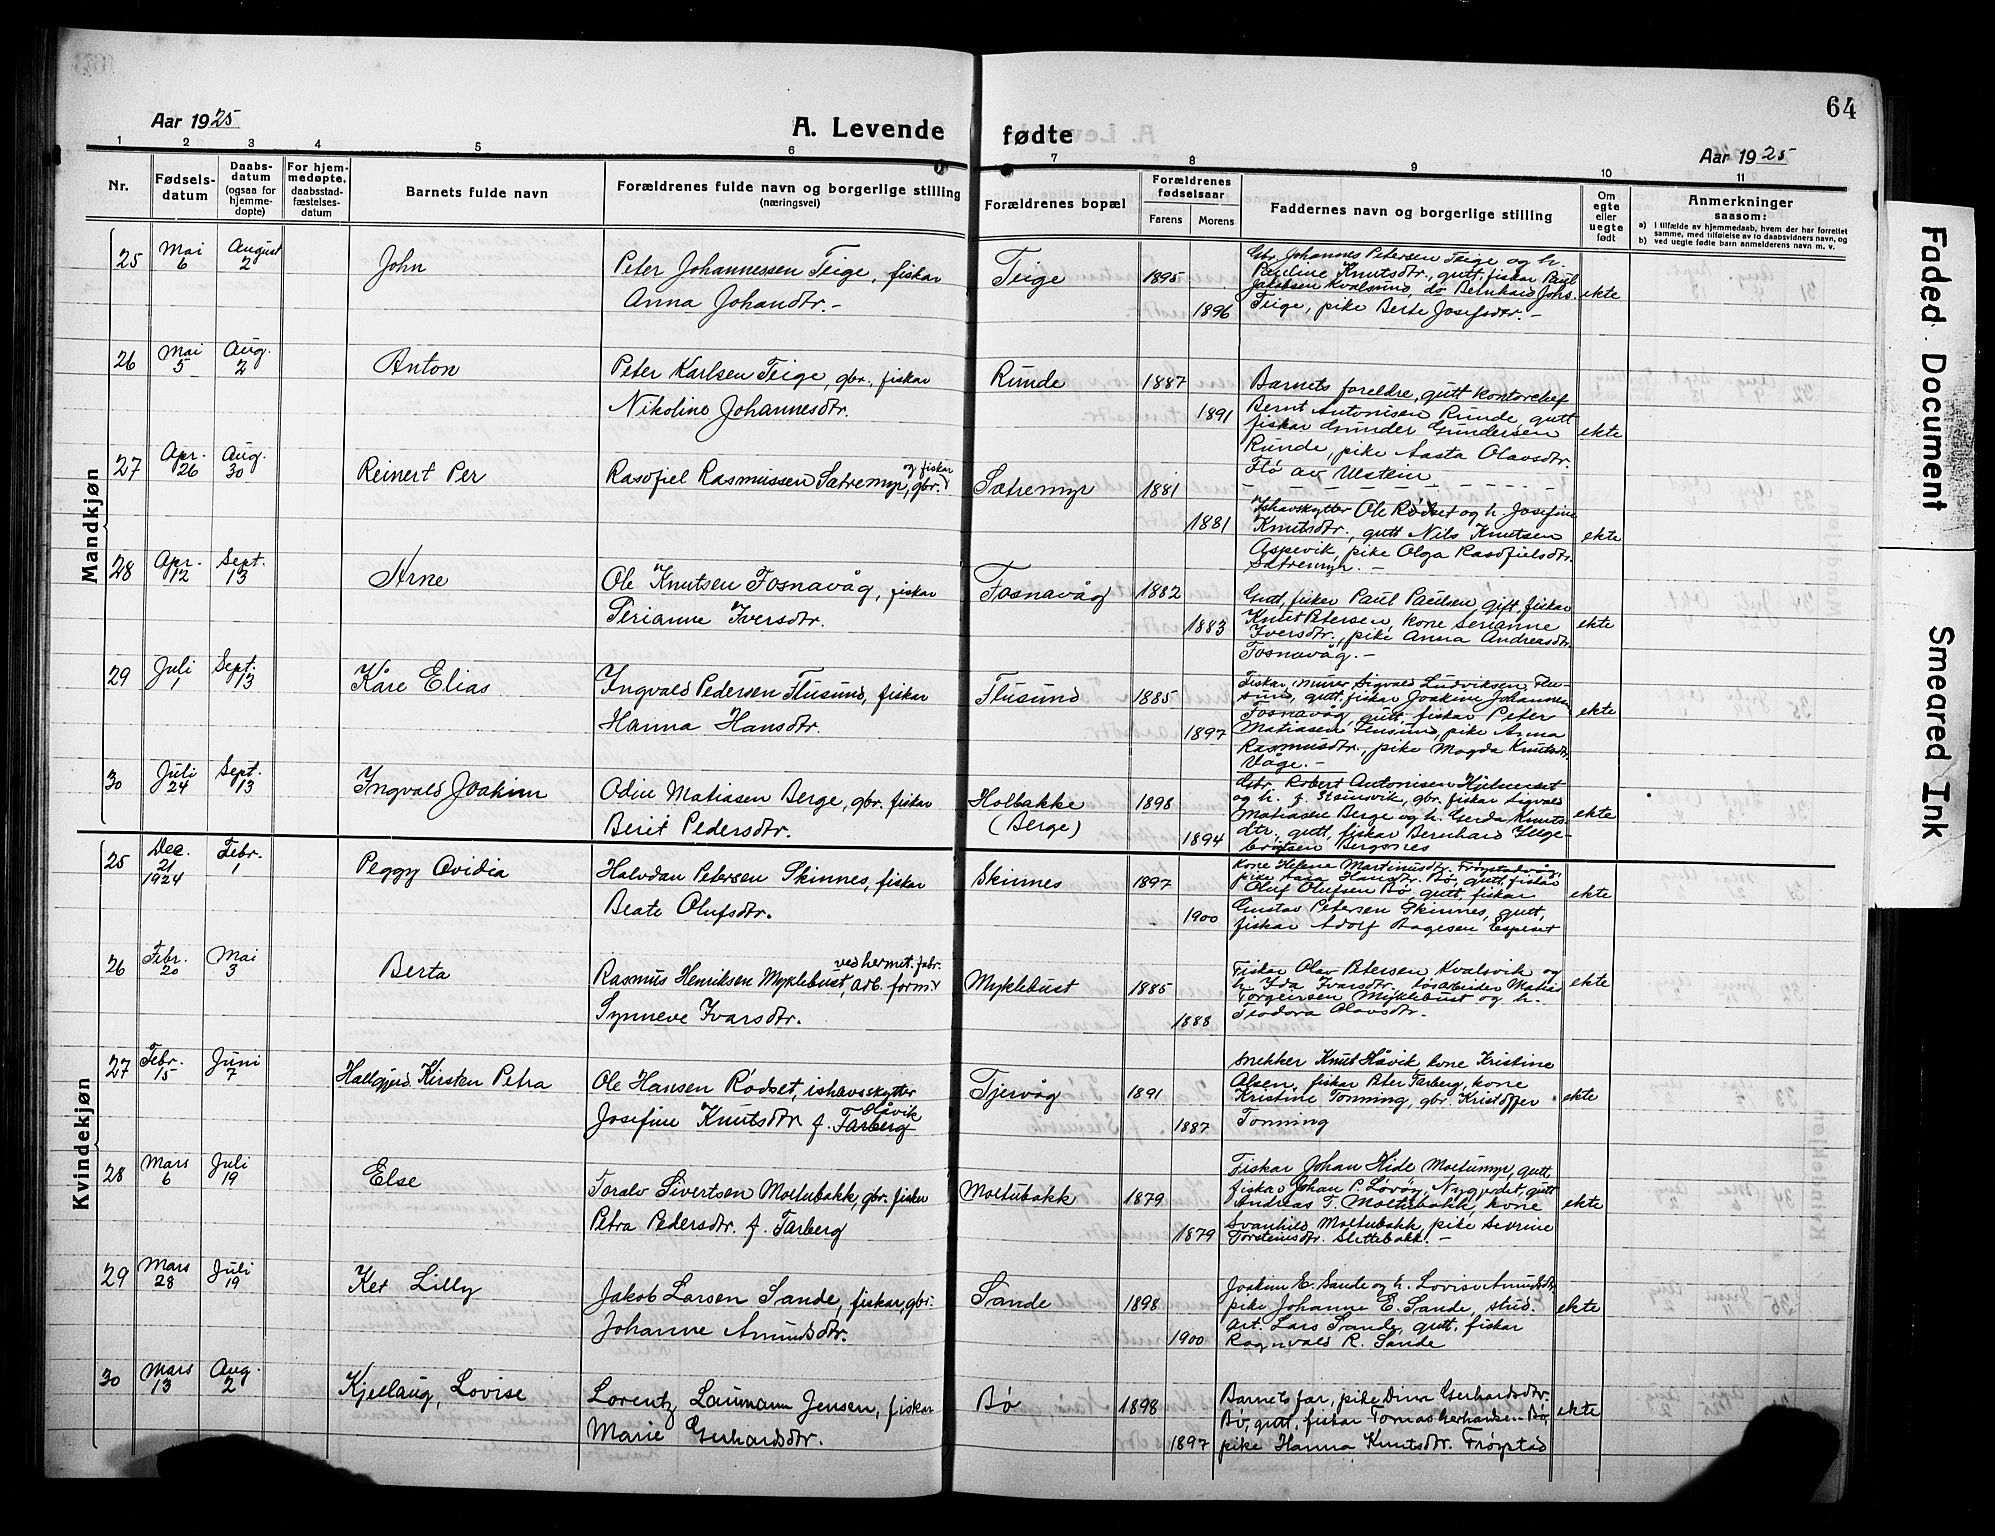 64
Aar 1925
A. Levende fødte
Aar 1925
1 2 3 4 5 6 7 8 9 10 11
Nr.
Fødsels-
datum
Daabs-
datum
(ogsaa for
hjemme-
døpte)
For hjem-
medøpte,
daabsstad-
fæstelses-
datum
Barnets fulde navn
Forældrenes fulde navn og borgerlige stilling
(næringsvei)
Forældrenes bopæl
Forældrenes
fødselsaar
Farens
Morens
Faddernes navn og borgerlige stilling
Om
egte
eller
uegte
født
Anmerkninger
saasom:
a) I tilfælde av hjemmedaab, hvem der har forrettet
samme, med tilføielse av to daabsvidners navn, og
b) ved uegte fødte barn anmelderens navn m. v.
Mandkjøn
25
Mai
6
August
2
John
Peter Johannessen Teige, fiskar
Anna Johandtr.-
Teige
1895
1896
Gbr. Johannes Petersen Teige og h.
Pauline Knutsdtr., gutt, fiskar Paul
Jakobsen Kvalsund, do Bernhard Johs.
Teige, pike Berte Josefsdtr.-
ekte
26
Mai
5
Aug.
2
Anton
Peter Karlsen Teige, gbr., fiskar
Nikoline Johannesdtr.
Runde
1887
1891
Barnets foreldre, gutt kontorchef
Bernt Antonisen Runde, gutt
fiskar Gunder Gundersen
Runde, pike Aasta Olavsdtr.
Flø av Ulstein
ekte
27
Apr.
26
Aug.
30
Reinert Per
Rasofiel Rasmussen Sætremyr, gbr. og fiskar
Sætremyr
1881
1881
Ishavskytter Ole Rødset og h. Josefine
Knutsdtr., gutt Nils Knutsen
Aspevik, pike Olga Rasofielsdtr.
Sætremyr.-
ekte
28
Apr.
12
Sept.
13
Arne
Ole Knutsen Fosnavåg, fiskar
Serianne Iversdtr.
Fosnavåg
1882
1883
Gutt, fisker Paul Paulsen, gift, fiskar
Knut Petersen, kone Serianne
Iversdtr., pike Anna Andreasdtr.
Fosnavåg.-
ekte
29
Juli
1
Sept.
13
Kåre Elias
Ingvald Pedersen Flusund, fiskar
Hanna Hansdtr.
Flusund
1885
1897
Fiskar, murer Sigvald Ludviksen Flu-
sund, gutt, fiskar Joakim Johannesen
Fosnavåg, gutt, fiskar Peter
Matiasen Flusund, pike Anna
Rasmusdtr., pike Magda Knutsdtr.
Våge.-
ekte
30
Juli
24
Sept.
13
Ingvald Joakim
Odin Matiasen Berge, gbr. fiskar
Berit Pedersdtr.
Holbakke
(Berge)
1898
1894
Gbr. Robert Antonisen
og h. f. Steinsvik, gbr. fiskar Sigvald
Matiasen Berge og h. Gerda Knuts-
dtr., gutt, fiskar Bernhard Inge-
brigtsen Bergsnes
ekte
Kvindekjøn
25
Dec.
21
1924
Febr.
1
Peggy Ovidia
Halvdan Petersen Skinnes, fiskar
Beate Olufsdtr.
Skinnes
1897
1900
Kone Helene Martinusdtr. Frøystadvåg,
pike Aasa Hansdtr. Bø, gutt, fiskar
Oluf Olufsen Bø, gutt, fiskar
Gustav Petersen Skinnes, gutt,
fiskar Adolf Aagesen Espeset
ekte
26
Febr.
20
Mai
3
Berta
Rasmus Henriksen Myklebust, arb. form. ved hermet. fabr.
Synneve Ivarsdtr.
Myklebust
1885
1888
Fiskar Olav Petersen Kvalsvik og
h. Ida Ivarsdtr. løsarbeider Matias
Torgeirsen Myklebust og h.
Teodora Olavsdtr.
ekte
27
Febr.
15
Juni
7
Hallgjerd Kirsten Petra
Ole Hansen Rødset, ishavskytter
Josefine Knutsdtr. f. Tarberg Håvik
Tjervåg
1891
1887
Snekker Knut Håvik, kone Kristine
Olsen, fiskar Peter Tarberg, kone
Kristine Tonning, gbr. Kristoffer
Tonning
ekte
28
Mars
6
Juli
19
Else
Toralv Sivertsen Moltubakk, gbr. fisker
Petra Pedersdtr. f. Tarberg
Moltubakk
1879
1879
Fiskar Johan Hide Moltumyr, gutt,
fiskar Johan P. Løvøy, Nygjerdet, gutt
Andreas T. Moltubakk, kone
Svanhild Moltubakk, pike Severine
Torsteinsdtr. Slettebakk.-
ekte
29
Mars
28
Juli
19
Ket Lilly
Jakob Larsen Sande, fiskar, gbr.
Johanne Amundsdtr.
Sande
1898
1900
Joakim E. Sande og h. Lovise Amundsdtr.
pike Johanne E. Sande, stud.
art. Lars Sande, gutt, fiskar
Ragnvald R. Sande
ekte
30
Mars
13
Aug.
2
Kjellaug, Lovise
Lorentz Laumann Jensen, fiskar
Marie Gerhardsdtr.
Bø
1898
1897
Barnets far, pike Dina Gerhardsdtr.
Bø, gutt, fiskar Tomas Gerhardsen Bø,
pike Hanna Knutsdtr. Frøystad
ekte
Faded Document
Smeared Ink